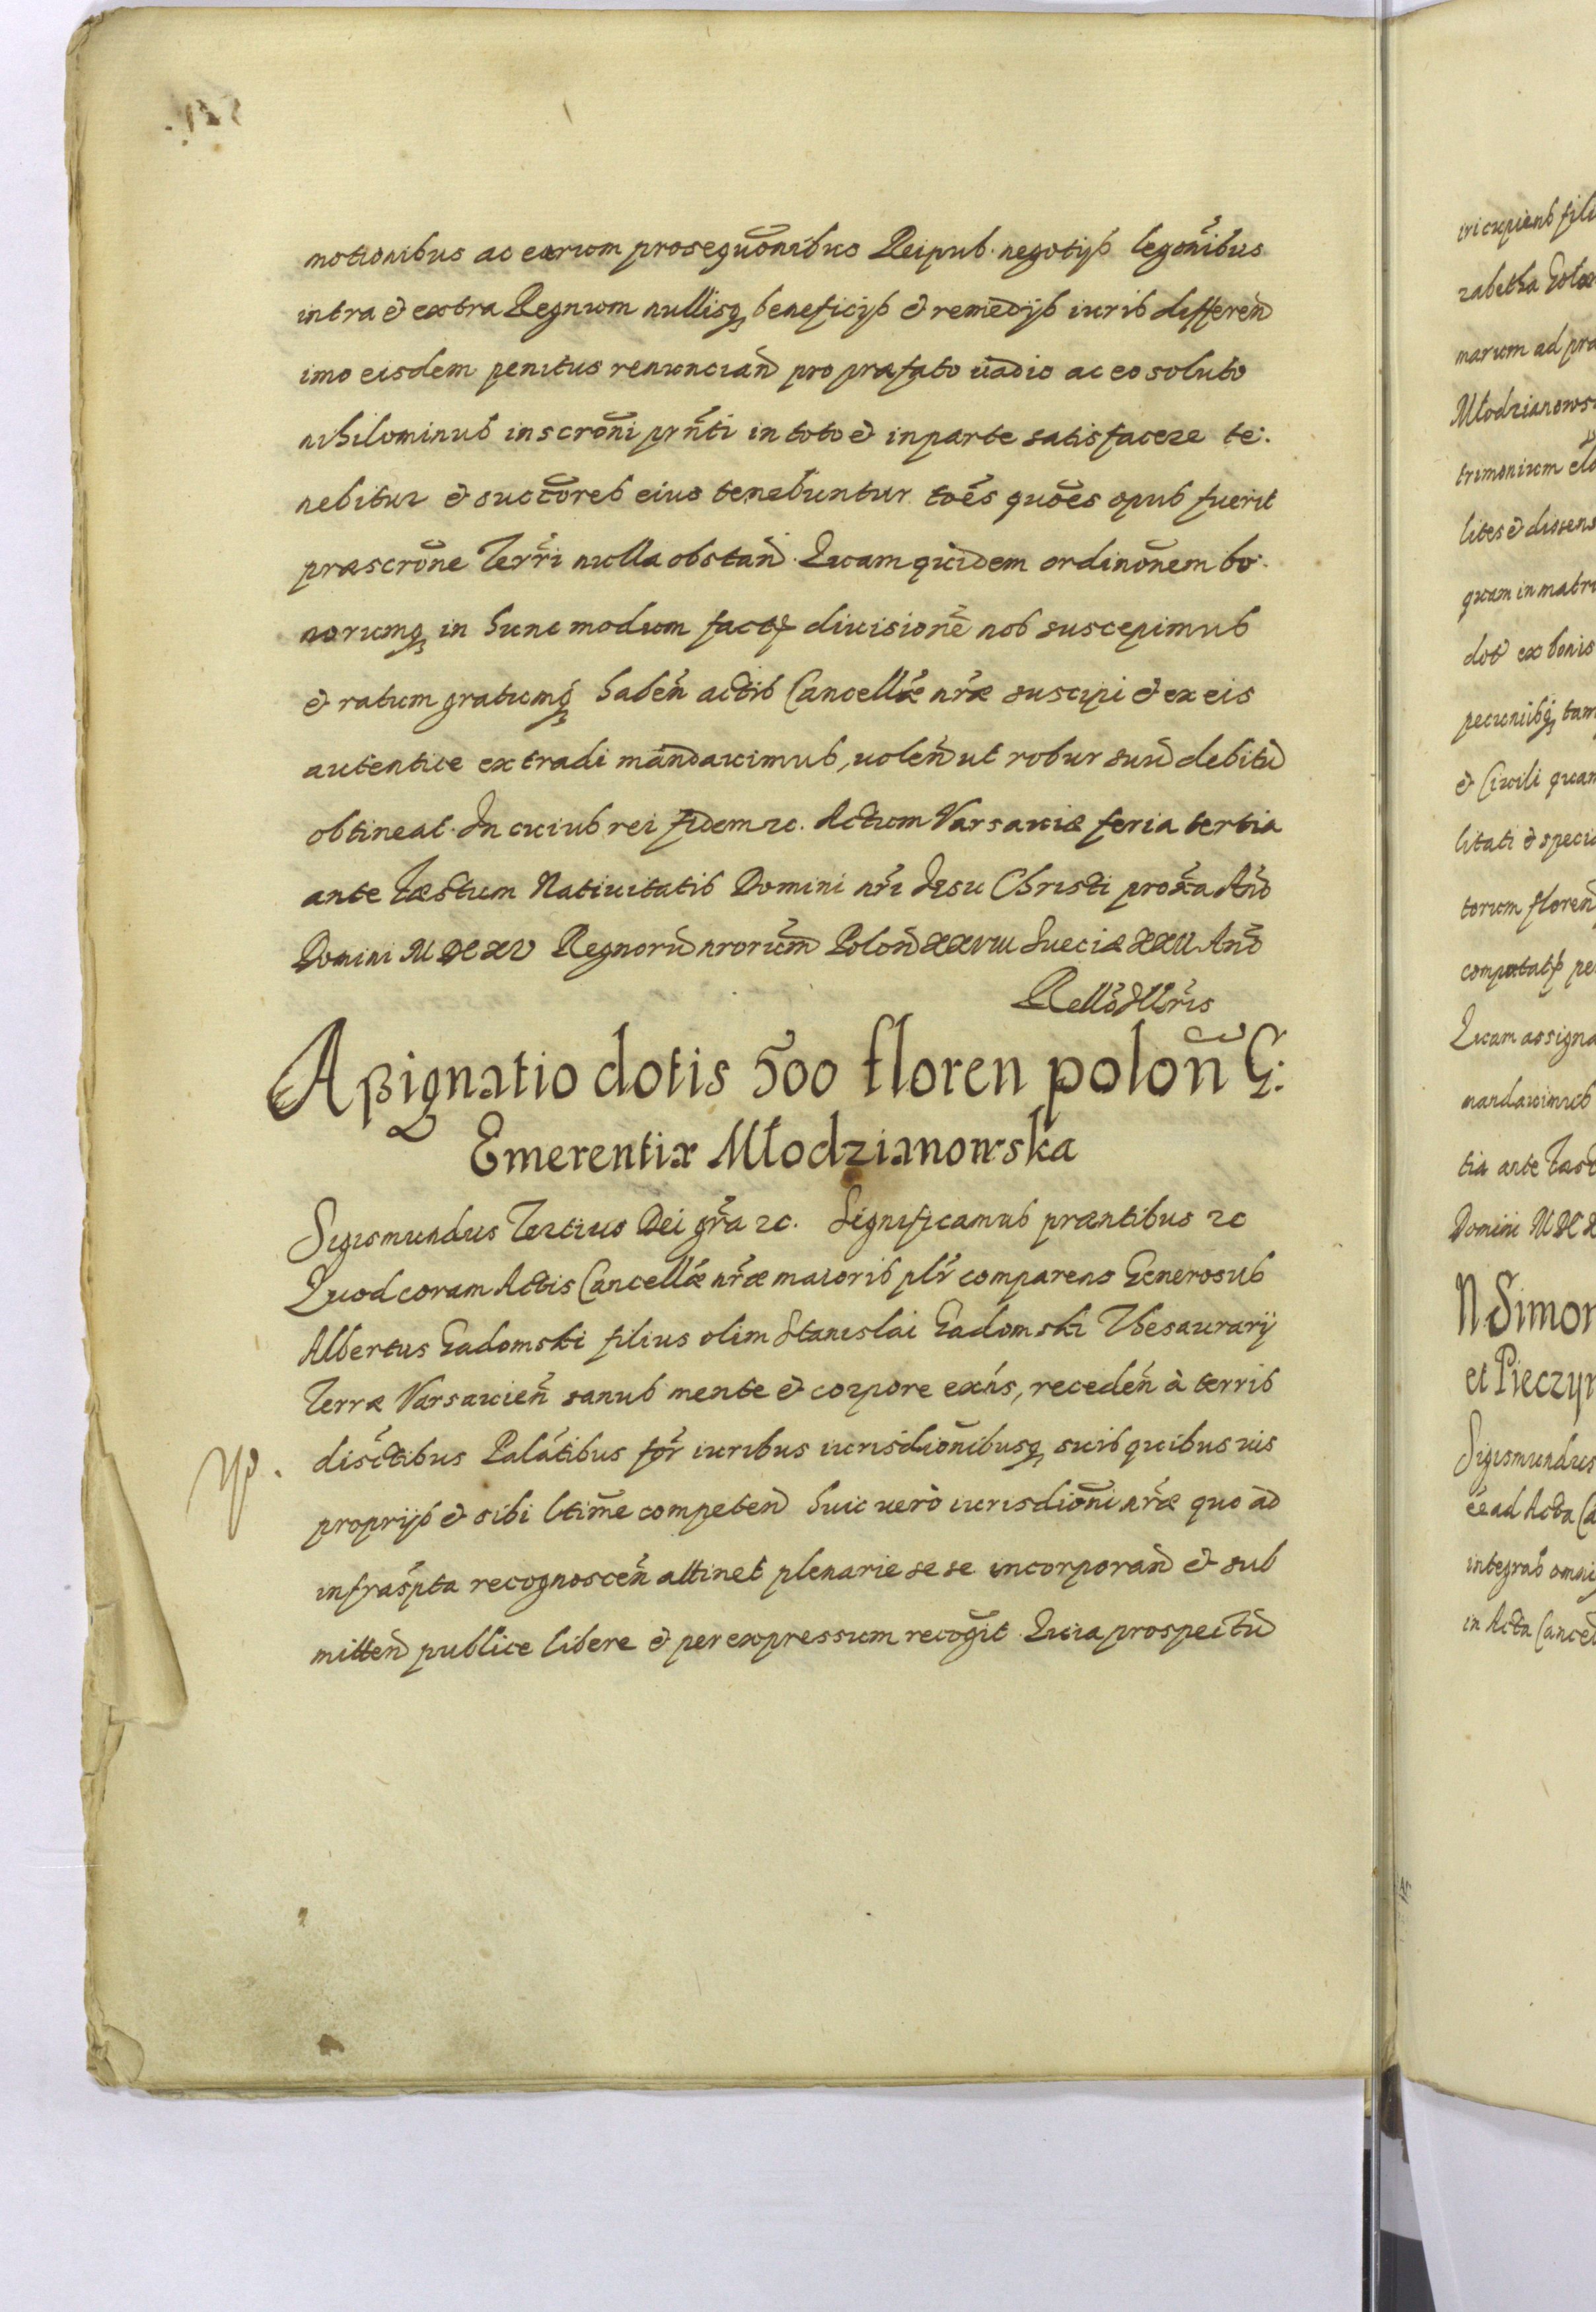 motionibus ac earum prosequõnibus Reipub. negotijs legõnibus
intra et extra Regnum nullisq beneficijs et remedijs iuris differeñ
imo eisdem penitus renunciañ pro præfato vadio ac eo soluto
nihilominus inscrõni prñti in toto et in parte satisfacere te:
nebitur et succõres eius tenebuntur tões quões opus fuerit
præscrõne Terrĩ nulla obstañ. Quam quidem ordinõnem bo:
norumq in hunc modum factã diuisionẽ nos suscepimus
et ratum gratumq habeñ actis Cancellæ nr̃æ suscipi et ex eis
autentice extradi mandauimus, uoleñ ut robur suũ debitũ
obtineat. In cuius rei fidem zc. Actum Varsauiæ feria tertia
ante Fæstum Natiuitatis Domini nr̃i Jesu Christi proxã Año
Domini MDCXV Regnorũ nrorum Poloñ XXVIII Sueciæ XXII Año
Rello Illr̃is
Aßignatio dotis 500 floren poloñ G:
Emerentiæ Młodzianowska
Sigismundus Tertius Dei gr̃a zc. Significamus præntibus zc
Quod coram Actis Cancellæ nr̃æ maioris plr̃ comparens Generosus
Albertus Gadomski filius olim Stanislai Gadomski Thesaurarij
Terræ Varsauieñ sanus mente et corpore exñs, recedeñ à terris
disctibus Palatibus for iuribus iurisdiõnibusq suis quibusuis
proprijs et sibi ltime competeñ huic uerò iurisdiõni nr̃æ quo ad
infrascpta recognosceñ attinet plenarie se se incorporañ et sub
mitteñ publice libere et per expressum recogit Quia prospectũ
iri cupiens fili
zabetha
marum ad præ
Młodzianows
trimonium
lites et dissens
quam in matri
dotẽ ex bonis
pecunijsq tam
et Ciuili quam
litati et specia
torum floreñ
computatis pe
Quam assigna
mandauimus
tia ante Fæst
Domini MDCX
N Simon
et Pieczyn
Sigismundus
ẽe ad Acta Ca
integras omni
in Acta Cancel